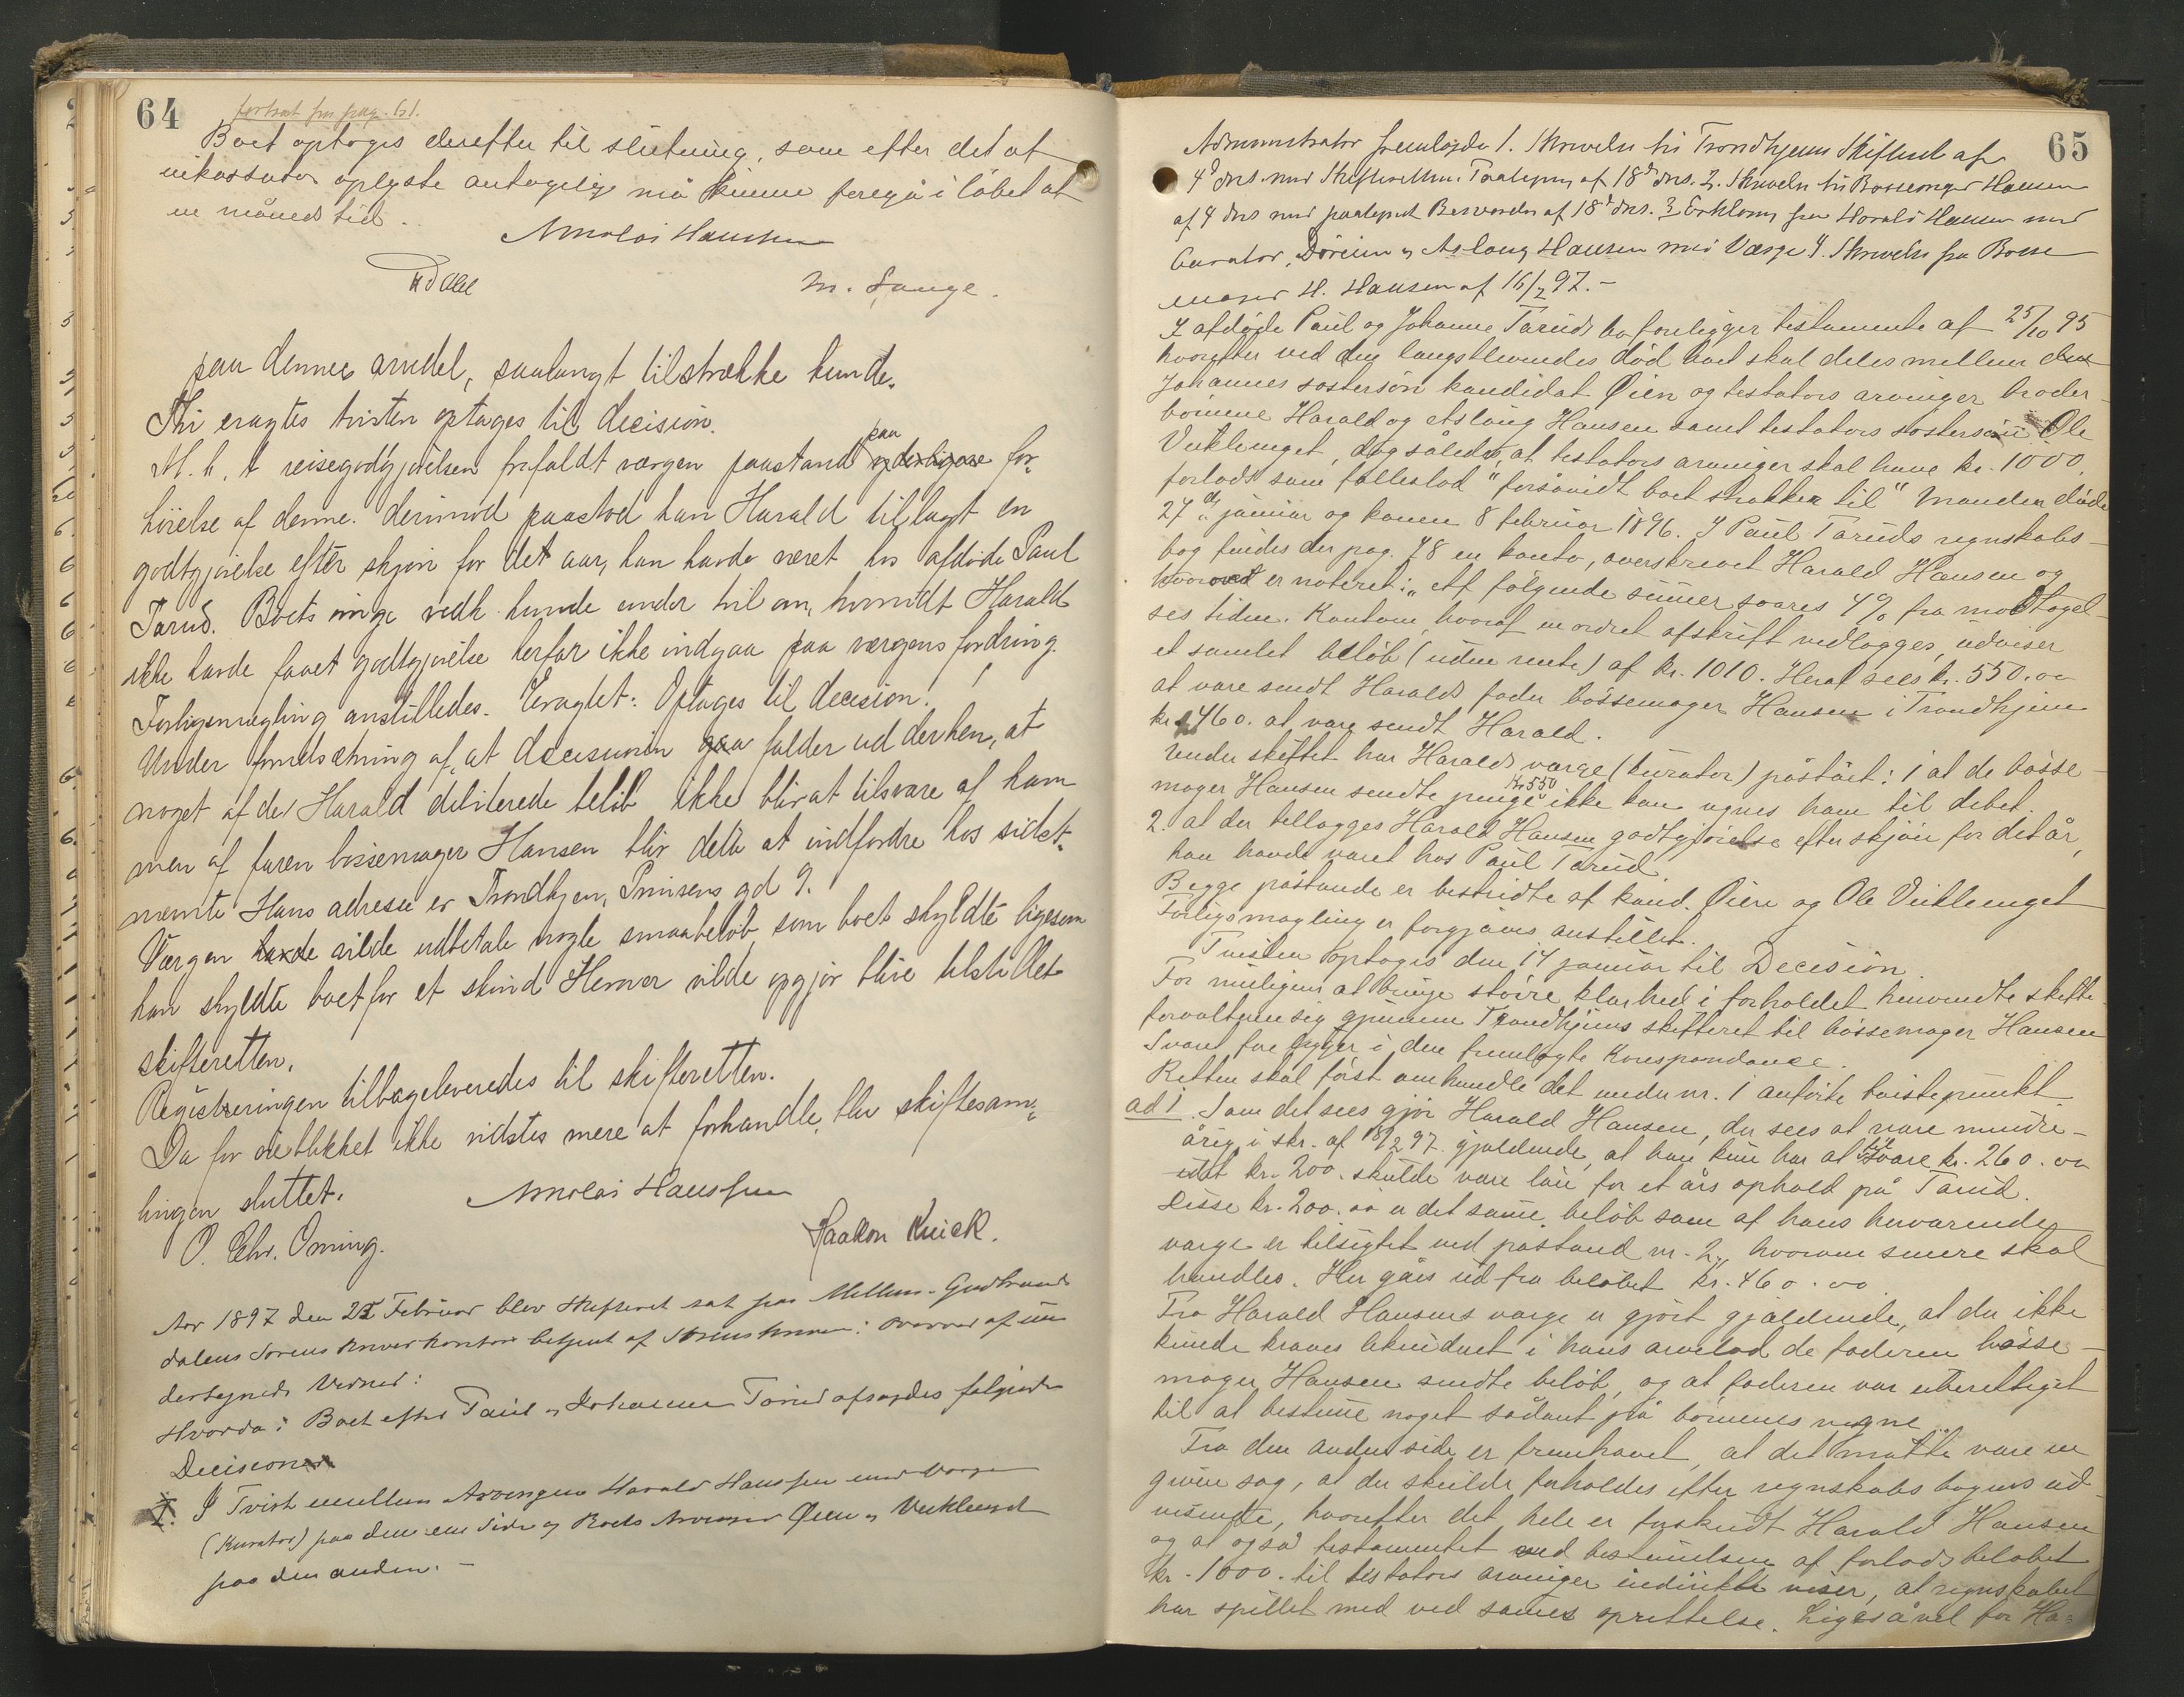 64
fortsat fra pag. 61.
Boet optoges derefter til slutning, som efter det af
inkassator oplyste antagelig må kunne foregå i løbet af
en måneds tid.
Nicolai Hanssen
M. Lange.
paa dennes andel, saalangt tilstrække kunde.
Thi eragtes tvisten optages til decision.
M. h. t. reisegodtgjørelsen frafaldt værgen paastand paa for,
høielse af denne. Derimod paastod han Harald tillagt en
godtgjørelse efter skjøn for det aar, han havde været hos afdøde Paul
Tarud. Boets øvrige vedk. kunde under tvil om, hvorvidt Harald
ikke havde faaet godtgjørelse herfor ikke indgaa paa værgens fordring.
Forligsmægling anstilledes. Eragtet: Optages til decision.
Under forudsætning af, at decisionen falder ud derhen, at
noget af de Harald debiterede beløb ikke blir at tilsvare af ham
men af faren bøssemager Hansen blir dette at indfordre hos sidst,
nævnte Hans adresse er Trondhjem, Prinsens gd 9.
Værgen havde vilde udbetale nogle smaabeløb, som boet skyldte ligesom
han skyldte boet for et skind Herover vilde opgjør blive tilstillet
skifteretten.
Registreringen tilbageleveredes til skifteretten.
Da for øieblikket ikke vidstes mere at forhandle, blev skiftesam,
lingen sluttet.
Nicolai Hanssen
O. Chr. Oming.
Haakon Kuick.
Aar 1897 den 22 Februar blev Skifteret sat paa Mellem-Gudbrands
dalens Sorenskriverkontor betjent af Sorenskriveren: Overvær af un
dertegnede Vidner:
Hvorda: I Boet efter Paul og Johanne Tarud afsagdes følgende
Decision
I. I Tvist mellem Arvingen Harald Hanssen med Værge
(Kurator) paa den ene Side og Boets Arvinger Øien og Veiklenget
paa den anden. -
65
Administrator fremlagde 1. Skrivelse til Trondhjems Skifteret af
4d dns. med Skifterettens Paategning af 18d dns. 2. Skrivelse til Bøssemager Hansen
af 4 dns med paategnet Besvarelse af 18d dns. 3 Erklæring fra Harald Hansen med
Curator, Dørum og Aslaug Hansen med Værge 4. Skrivelse fra Bøsse
mager H. Hansen af 16/2 97. -
I afdøde Paul og Johanne Taruds bo foreligger testamente af 25/10 95
hvorefter ved den længstlevendes død boet skal deles mellem
Johannes søstersøn kandidat Øien og testators arvinger broder-
børnene Harald og Aslaug Hansen samt testators søstersøn Ole
Veiklenget, dog således, at testators arvinger skal have kr. 1000,
forlods som fælleslod "forsåvidt boet strækker til" Manden døde
27de januar og konen 8 februar 1896. I Paul Taruds regnskabs-
bog findes der pag. 78 en konto, overskrevet Harald Hansen og
hvorved er noteret: "Af følgende summer svares 4% fra modtagel-
ses tiden. Kontoen, hvoraf en ordret afskrift vedlægges, udviser
et samlet beløb (uden rente) af kr. 1010. Heraf sees kr. 550.00
at være sendt Haralds fader bøssemager Hansen i Trondhjem
kr. 460. at være sendt Harald.
Under skiftet har Haralds værge (kurator) påstået: 1 at de bøsse-
mager Hansen sendte penge Kr 550 ikke kan regnes ham til debet.
2. at der tillægges Harald Hansen godtgjørelse efter skjøn for det år,
han havde været hos Paul Tarud.
Begge påstande er bestridte af kand. Øien og Ole Veiklenget
Forligsmægling er forgjæves anstillet.
Tvisten optoges den 14 januar til Decision.
For muligens at bringe større klarhed i forholdet henvendte skifte-
forvalteren sig gjennem Trondhjems skifteret til bøssemager Hansen
Svaret foreligger i den fremlagte Korrespondance.
Retten skal først omhandle det under nr. 1 anførte tvistepunkt
ad 1. Som det sees gjør Harald Hansen, der sees at være mindre-
årig, i skr. af 18/2 97. gjældende, at han kun har at tilsvare kr. 260.00
idet kr. 200. skulde være løn for et års ophold på Tarud.
Disse kr. 200.00 er det samme beløb som af hans herværende
værge er tilsigtet ved påstand nr. 2, hvorom senere skal
handles. Her gåes ud fra beløbet kr. 460.00
Fra Harald Hansens værge er gjort gjældende, at der ikke
kunde kræves likvideret i hans arvelod de faderen bøsse-
mager Hansen sendte beløb, og at faderen var uberettiget
til at bestemme noget sådant på børnenes vegne.
Fra den anden side er fremhævet, at det måtte være en
given sag, at der skulde forholdes efter regnskabsbogens ud-
visende, hvorefter det hele er forskudt Harald Hansen
og at også testamentet ved bestemmelsen af forlodsbeløbet
kr. 1000. til testators arvinger indirekte viser, at regnskabet
har spillet med ved sammes oprettelse. Ligesåvel for Ha=